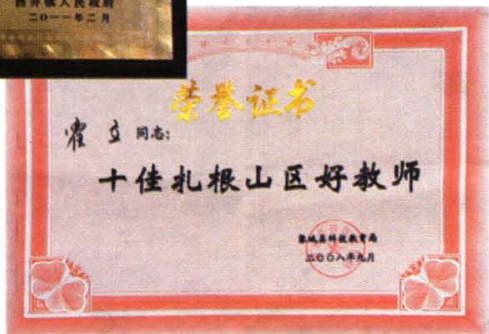 西井镇人民政府
二〇一一年二月
荣誉证书
霍立 同志:
十佳扎根山区好教师
黎城县科技教育局
二〇〇八年九月